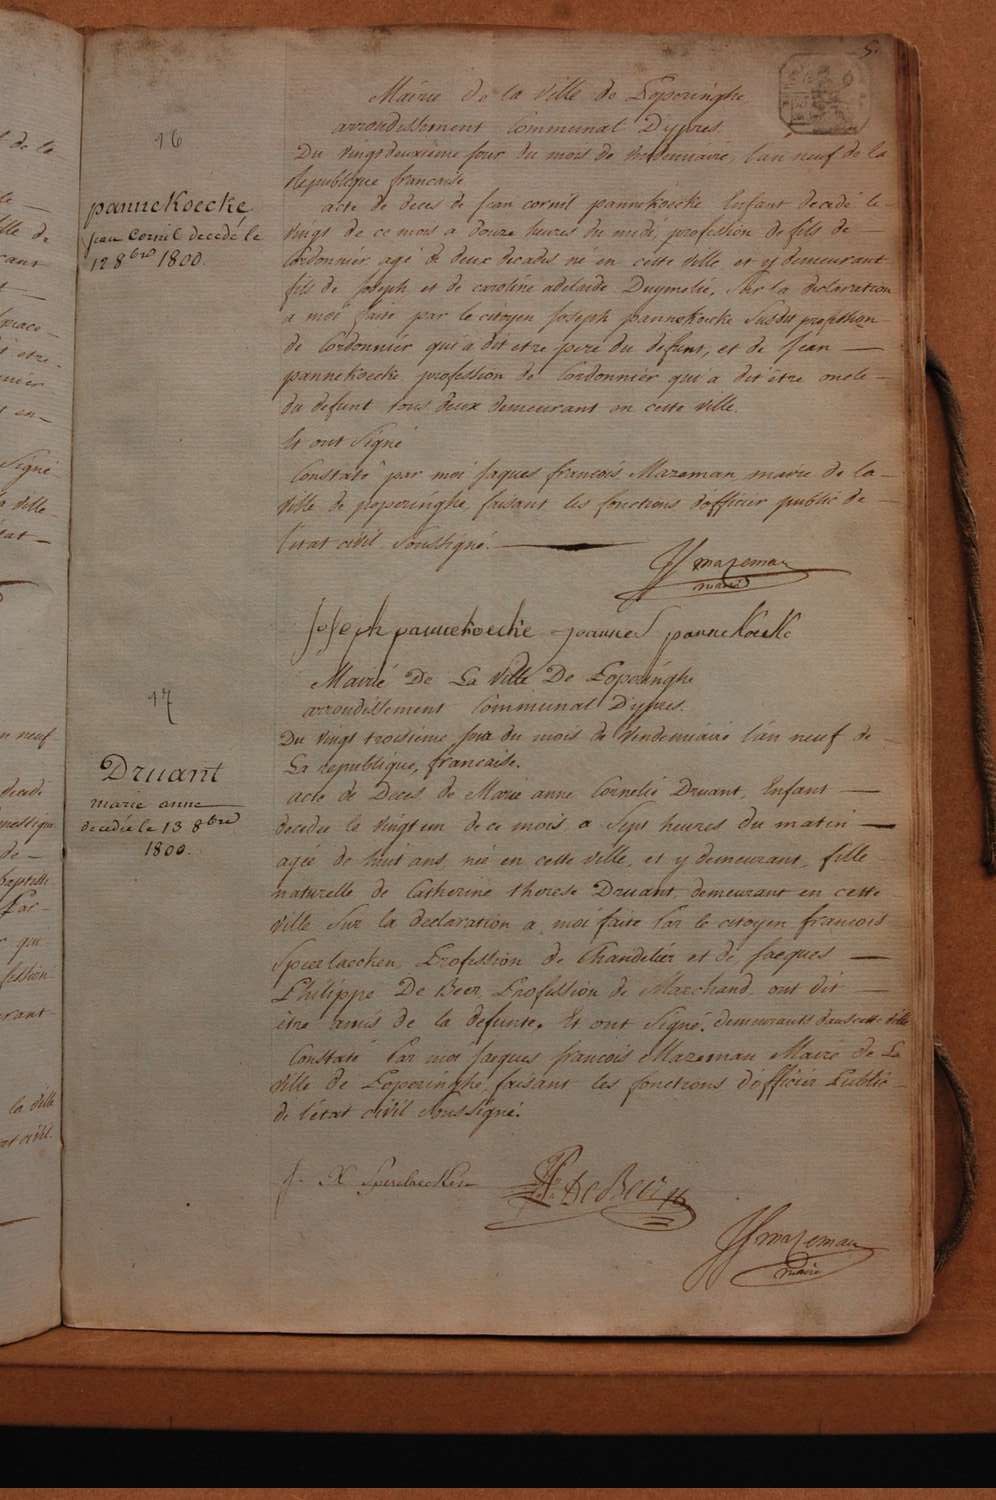 5.
16
pannekoecke
jean Cornil decedé le
12 8bre 1800.
Mairie de la Ville de Poperinghe
arrondissement Communal D'ypres.
Du vingt deuxième jour du mois de vendemiaire, l'an neuf de la
Republique francaise
acte de deces de Jean cornil pannekoecke Enfant decedé le
vingt de ce mois a douze heures du midi, profession de fils de
Cordonnier agé de deux decades né en cette ville et y demeurant
fils de Joseph et de caroline adelaide Duymelie, Sur la declaration
a moi faite par le citoyen Joseph pannekoecke Susdit profession
de Cordonnier qui a dit etre pere du defunt, et de Jean
pannekoecke profession de Cordonnier qui a dit être oncle
du defunt tous deux demeurant en cette ville.
Et ont Signé
Constaté par moi Jaques francois Mazeman maire de la
ville de poperinghe faisant les fonctions d'officier public de
l'etat civil Soussigné.
JJ mazeman
maire
Joseph pannekoecke joannes pannekoecke
17
Druant
marie anne
decedée le 13 8bre
1800.
Mairie De La Ville De Poperinghe
arrondissement Communal D'ypres.
Du vingt troisieme jour du mois de vendemiaire l'an neuf de
La republique francaise.
acte de Deces de Marie anne Cornelie Druant, Enfant
decedee le vingt un de ce mois a Sept heures du matin
agée de huit ans, née en cette ville, et y demeurant, fille
naturelle de Catherine therese Druant demeurant en cette
ville Sur la declaration a moi faite Par le citoyen francois
Speelaecken Profession de Chandelier et de jaeques
Philippe De Beer Profession de Marchand ont dit
être amis de la defunte. Et ont Signé. demeurants dans cette ville
Constaté Par moi Jaeques francois Mazeman Maire de La
ville de Poperinghe, faisant les fonctions d'officier Public
de l'état civil Soussigné.
f. X Speelaecken
De Beer
JJ mazeman
maire